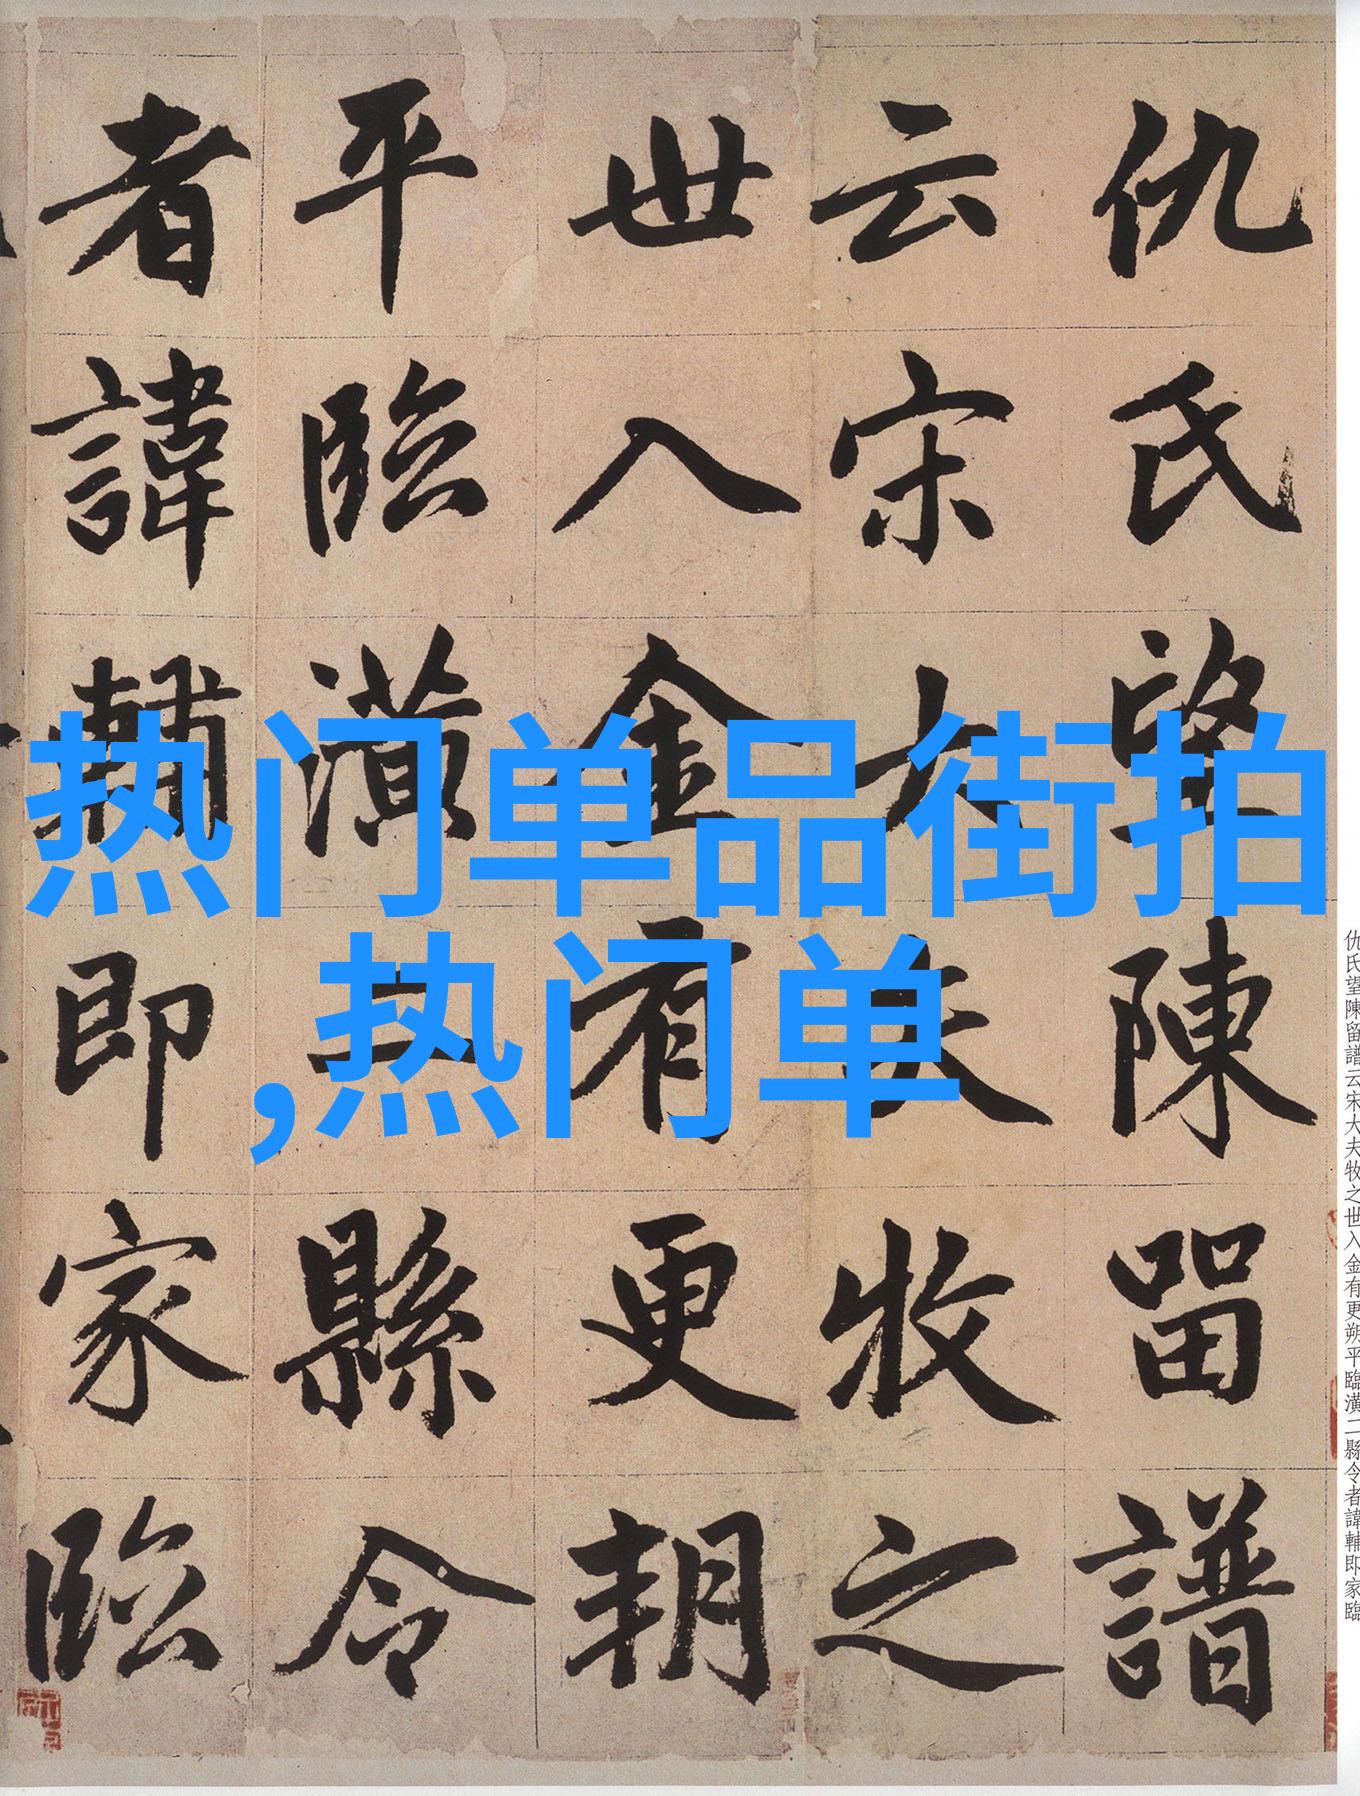 仇氏望陳留譜
云宋大夫牧之
世入金有更朔
平臨潢二縣令
者諱輔即家臨
热门单品街拍
,热门单
仇氏望陳留譜云宋大夫牧之世入金有更朔平臨潢二縣令者諱輔即家臨